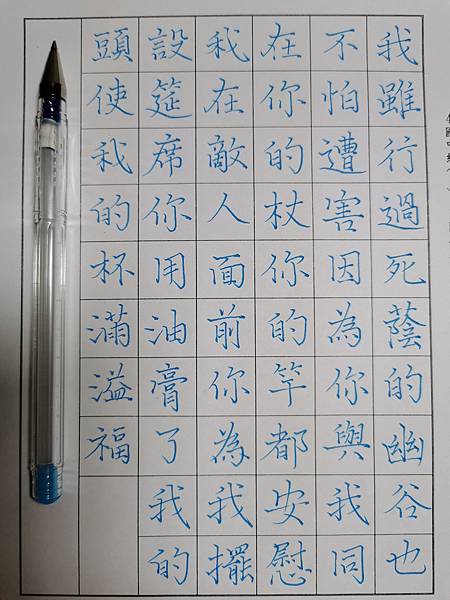 我雖行過死蔭的幽谷也
不怕遭害因為你與我同
在你的杖你的竿都安慰
我在敵人面前你為我擺
設筵席你用油膏了我的
頭使我的杯滿溢福